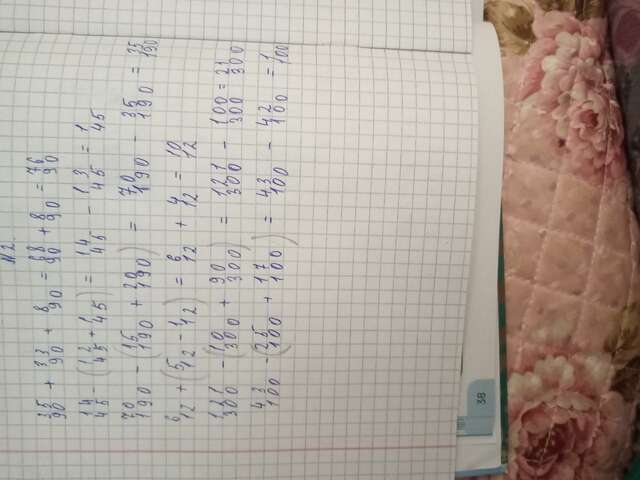 №2.
35/90 + 33/90 + 8/90 = 68/90 + 8/90 = 76/90
14/45 - (12/45 + 1/45) = 14/45 - 13/45 = 1/45
70/190 - (15/190 + 20/190) = 70/190 - 35/190 = 35/190
6/12 + (5/12 - 1/12) = 6/12 + 4/12 = 10/12
121/300 - (10/300 + 90/300) = 121/300 - 100/300 = 21/300
43/100 - (25/100 + 17/100) = 43/100 - 42/100 = 1/100
38